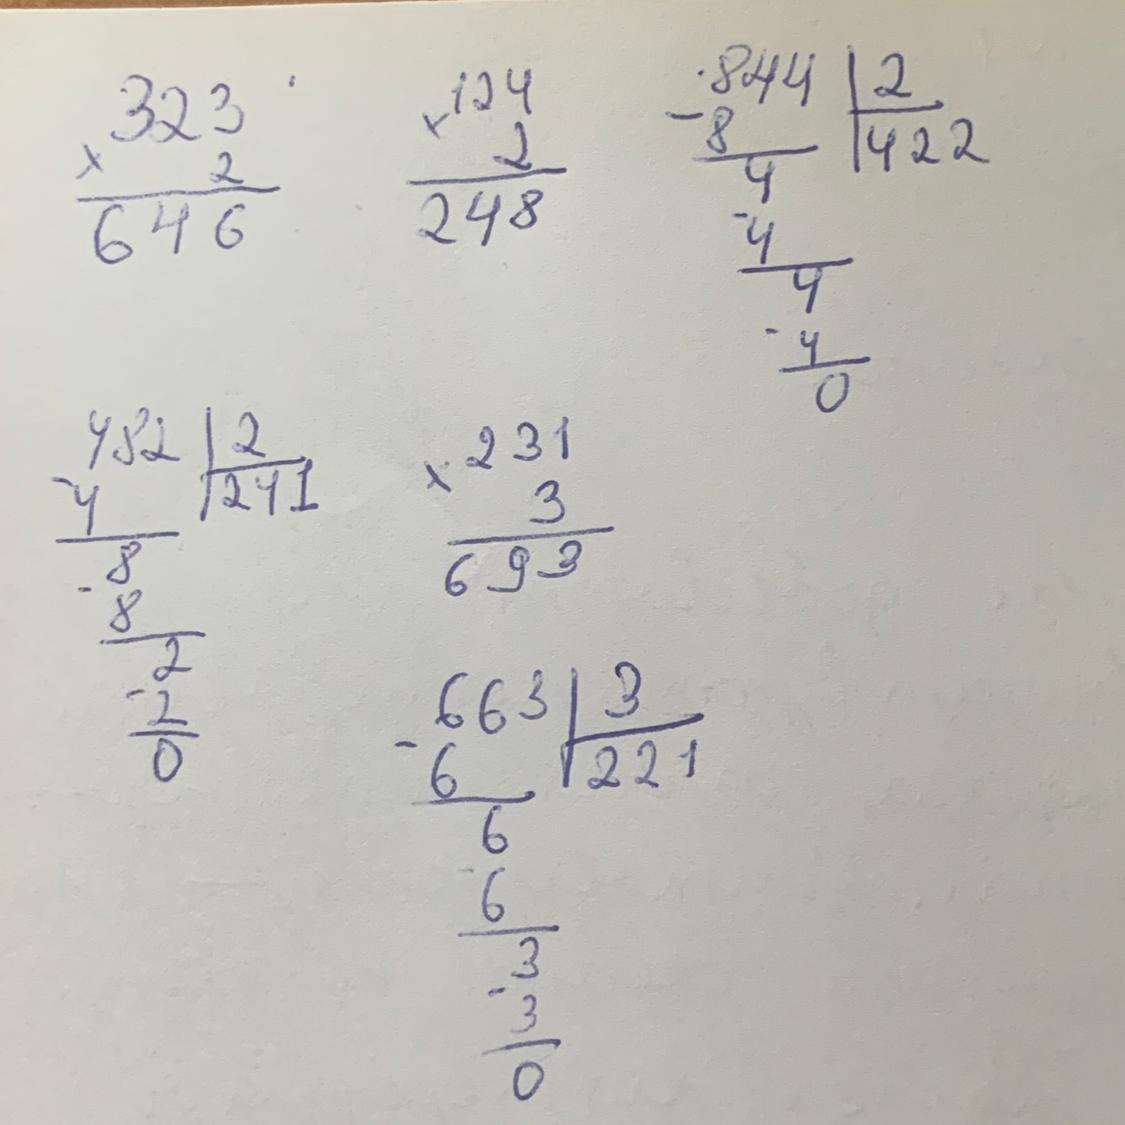 323
× 2
646
×124
2
248
844 | 2
-8 | 422
4
-4
4
-4
0
482 | 2
-4 | 241
8
-8
2
-2
0
×231
3
693
663 | 3
-6 | 221
6
-6
3
-3
0